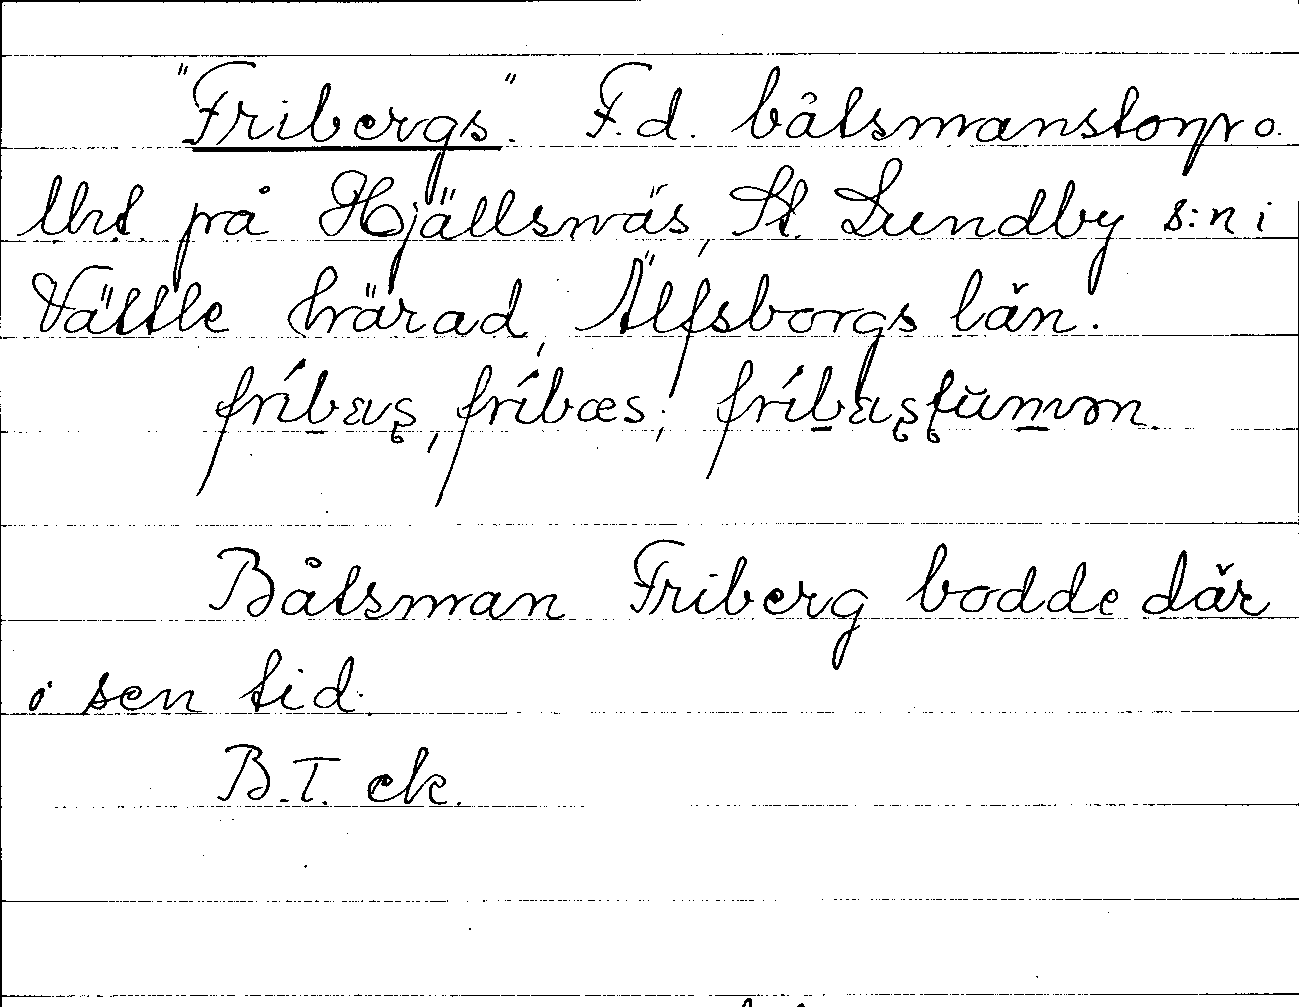 "Fribergs". F.d. båtsmanstorp o.
tht. på Hjällsnäs, St. Lundby s:n i
Vättle härad, Älfsborgs län.
fríbæs; 
Båtsman Friberg bodde där
i sen tid.
B.T. ek.